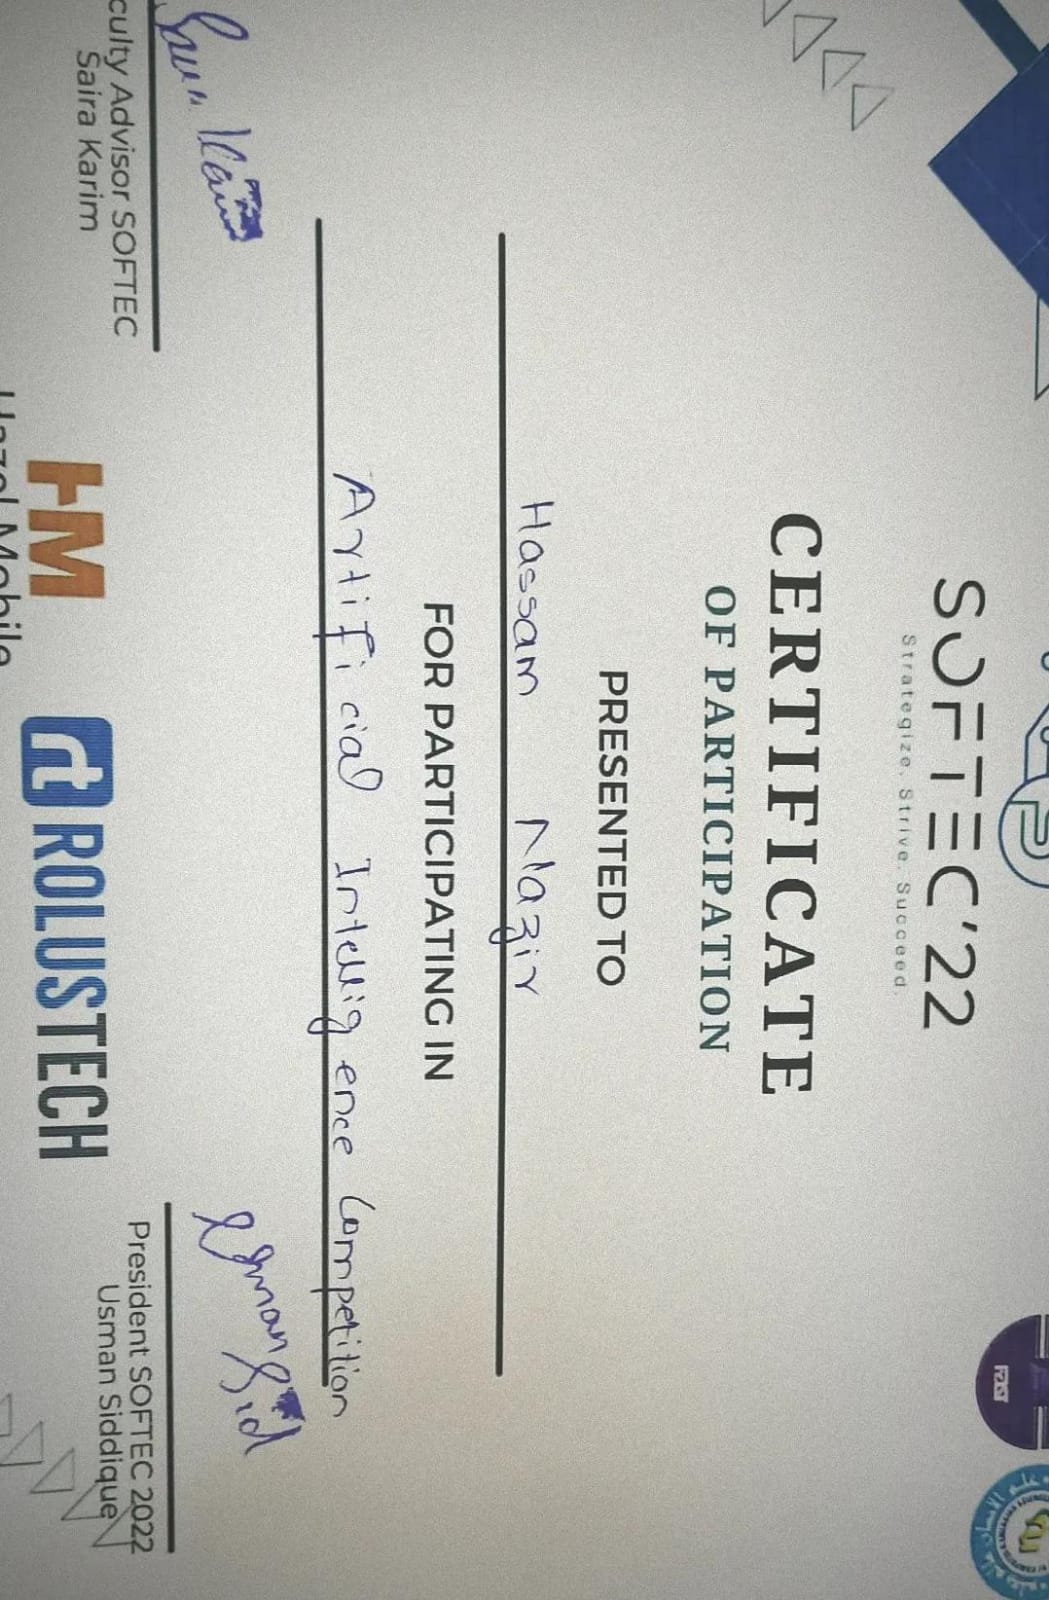 FAST
SOFTEC'22
Strategize. Strive. Succeed.
CERTIFICATE
OF PARTICIPATION
PRESENTED TO
Hassam Nazir
FOR PARTICIPATING IN
Artificial Intelligence Competition
Usman Sid
culty Advisor SOFTEC
Saira Karim
President SOFTEC 2022
Usman Siddique
HM
Hazel Mobile
rt ROLUSTECH